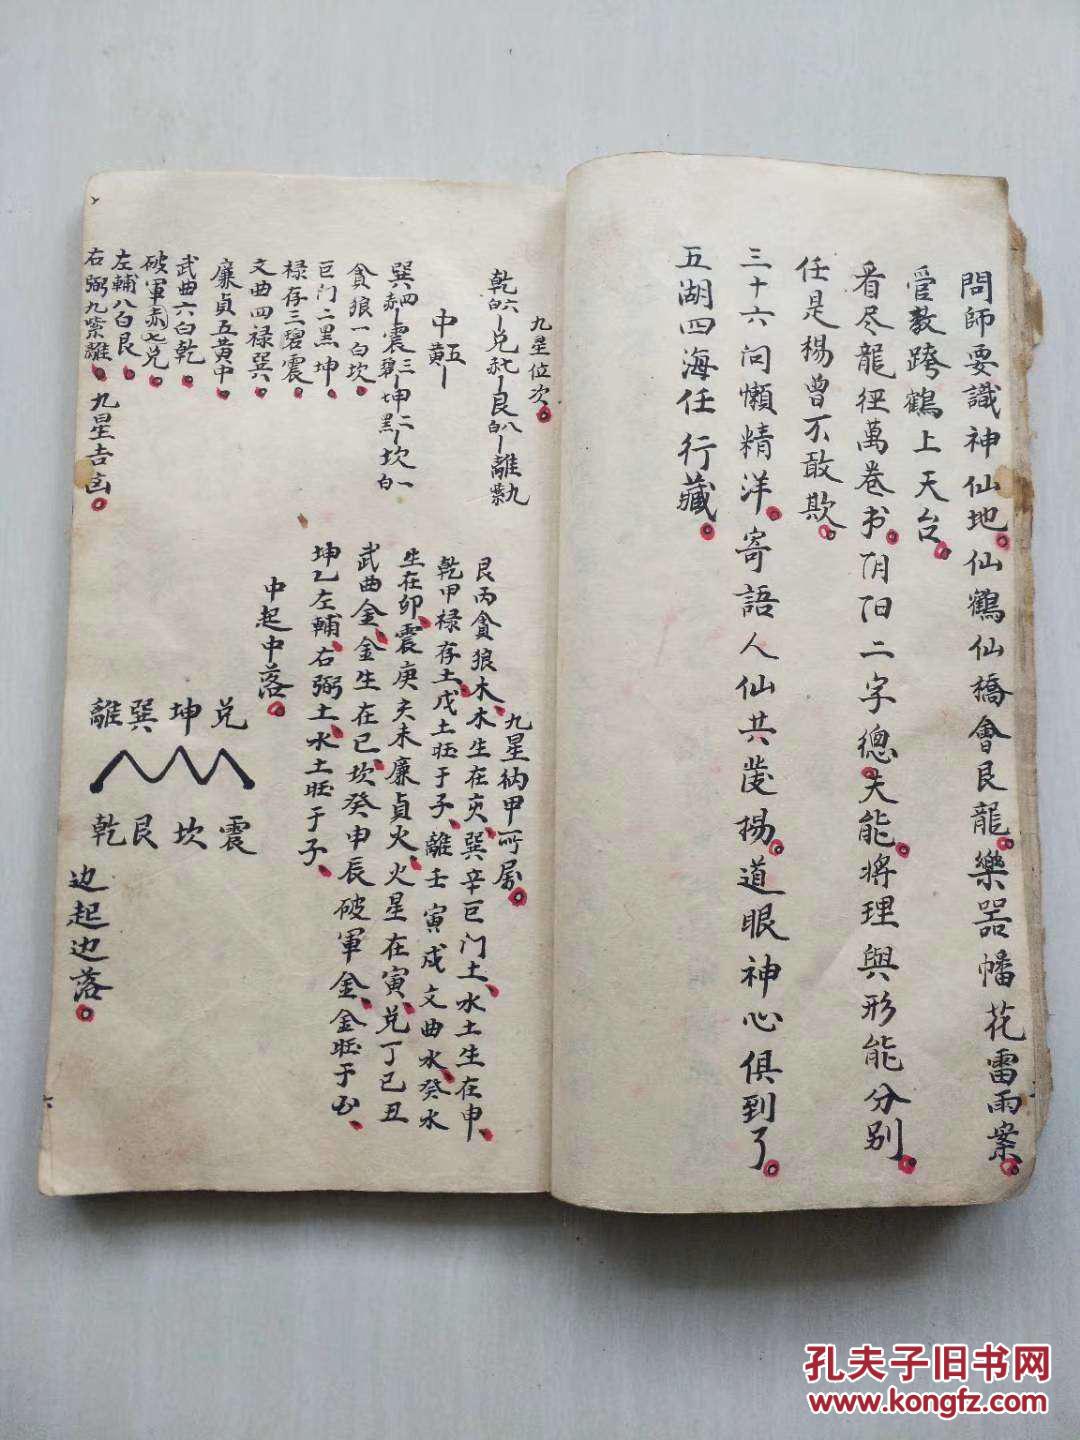 問師要識神仙地。仙鶴仙橋會艮龍。樂器幡花雷雨案。
管教跨鶴上天台。
看尽龍經萬卷书。阴阳二字總。夫能。将理與形能分别。
任是楊曾不敢欺。
三十六问懶精洋。寄語人仙共发揚。道眼神心俱到了。
五湖四海任行藏。
九星位次。
乾六白 兑七赤 艮八白 離九紫
中五黄
巽四 震三碧 坤二黑 坎一白
貪狼一白坎。
巨门二黑坤。
禄存三碧震。
文曲四禄巽。
廉貞五黄中。
武曲六白乾。
破軍赤七兑。
左輔八白艮。
右弼九紫離。九星吉凶。
九星纳甲所属。
艮丙貪狼木、木生在亥、巽辛巨门土、水土生在申、
乾甲禄存土、戊土旺于子、離壬寅戌文曲水、癸水
生在卯、震庚亥未廉貞火、火星在寅、兑丁巳丑
武曲金、金生在巳、坎癸申辰破軍金、金旺于酉、
坤乙左輔、右弼土、水土旺于子、
中起中落。
離巽坤兑
乾艮坎震
边起边落。
孔夫子旧书网
www.kongfz.com